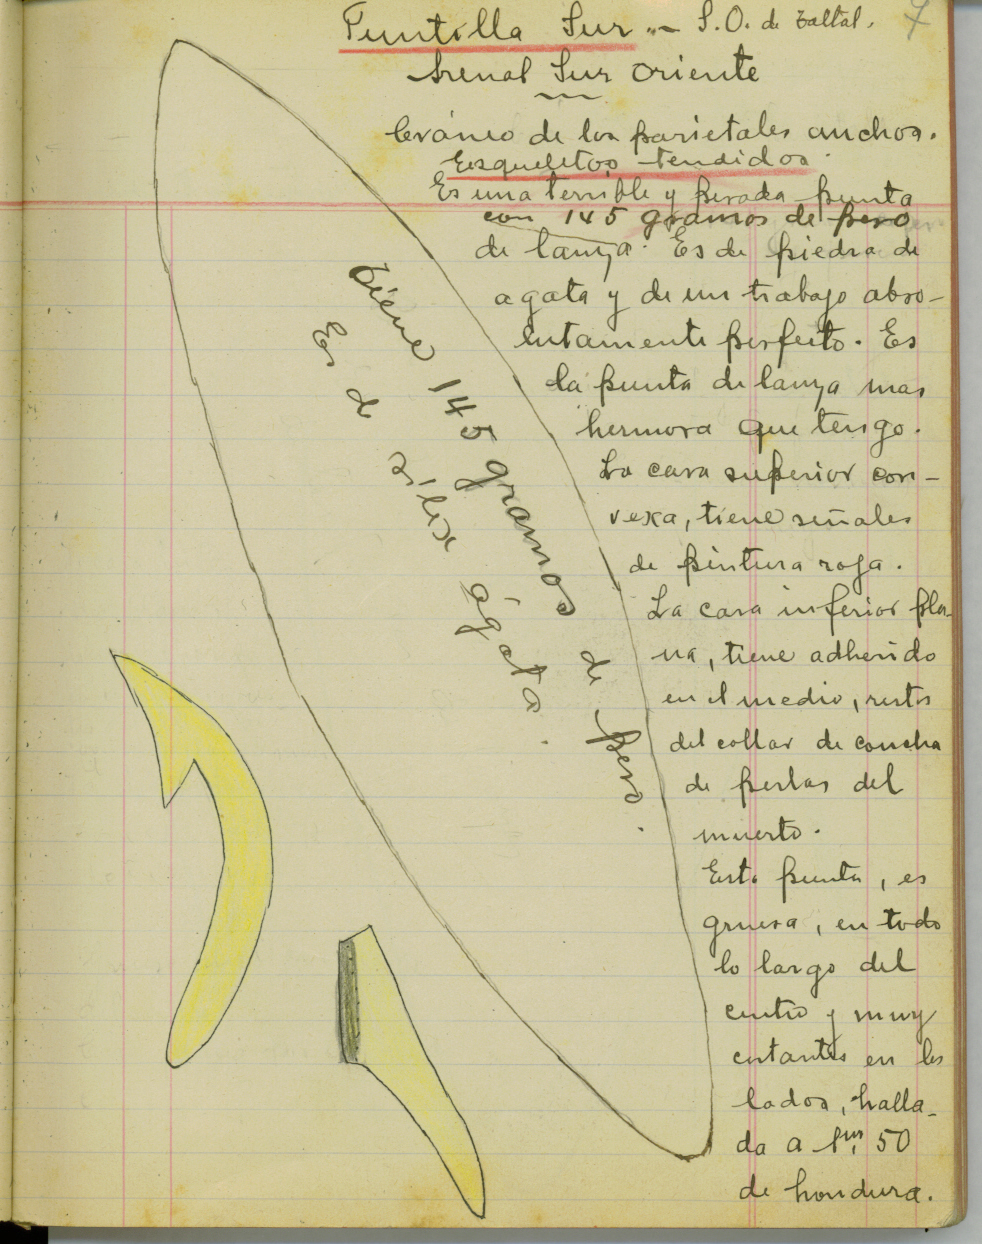 7
Puntilla Sur.- S.O. de Taltal.
Arenal Sur Oriente
Cráneo de los parietales anchos.
Esqueletos tendidos.
Es una terrible y pesada punta
con 145 gramos de peso
de lanza. Es de piedra de
agata y de un trabajo abso-
lutamente perfecto. Es
la punta de lanza mas
hermosa que tengo.
La cara superior con-
vexa, tiene señales
de pintura roja.
La cara inferior pla-
na, tiene adherido
en el medio, restos
del collar de concha
de perlas del
muerto.
Esta punta, es
gruesa, en todo
lo largo del
centro y muy
cortantes en los
lados, halla-
da a 1m, 50
de hondura.
Tiene 145 gramos de peso.
Es de silex ágata.